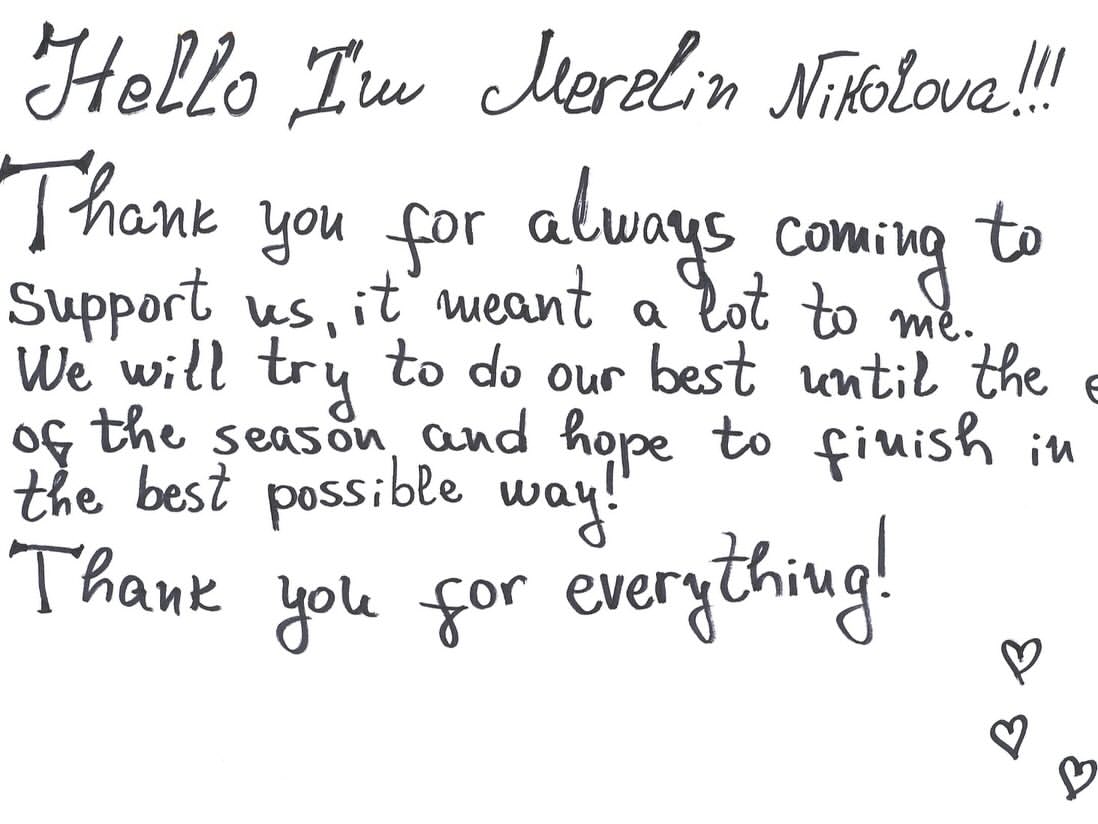 Hello I'm Merelin Nikolova!!!
Thank you for always coming to
support us, it meant a lot to me.
We will try to do our best until the
of the season and hope to finish in
the best possible way!
Thank you for everything!